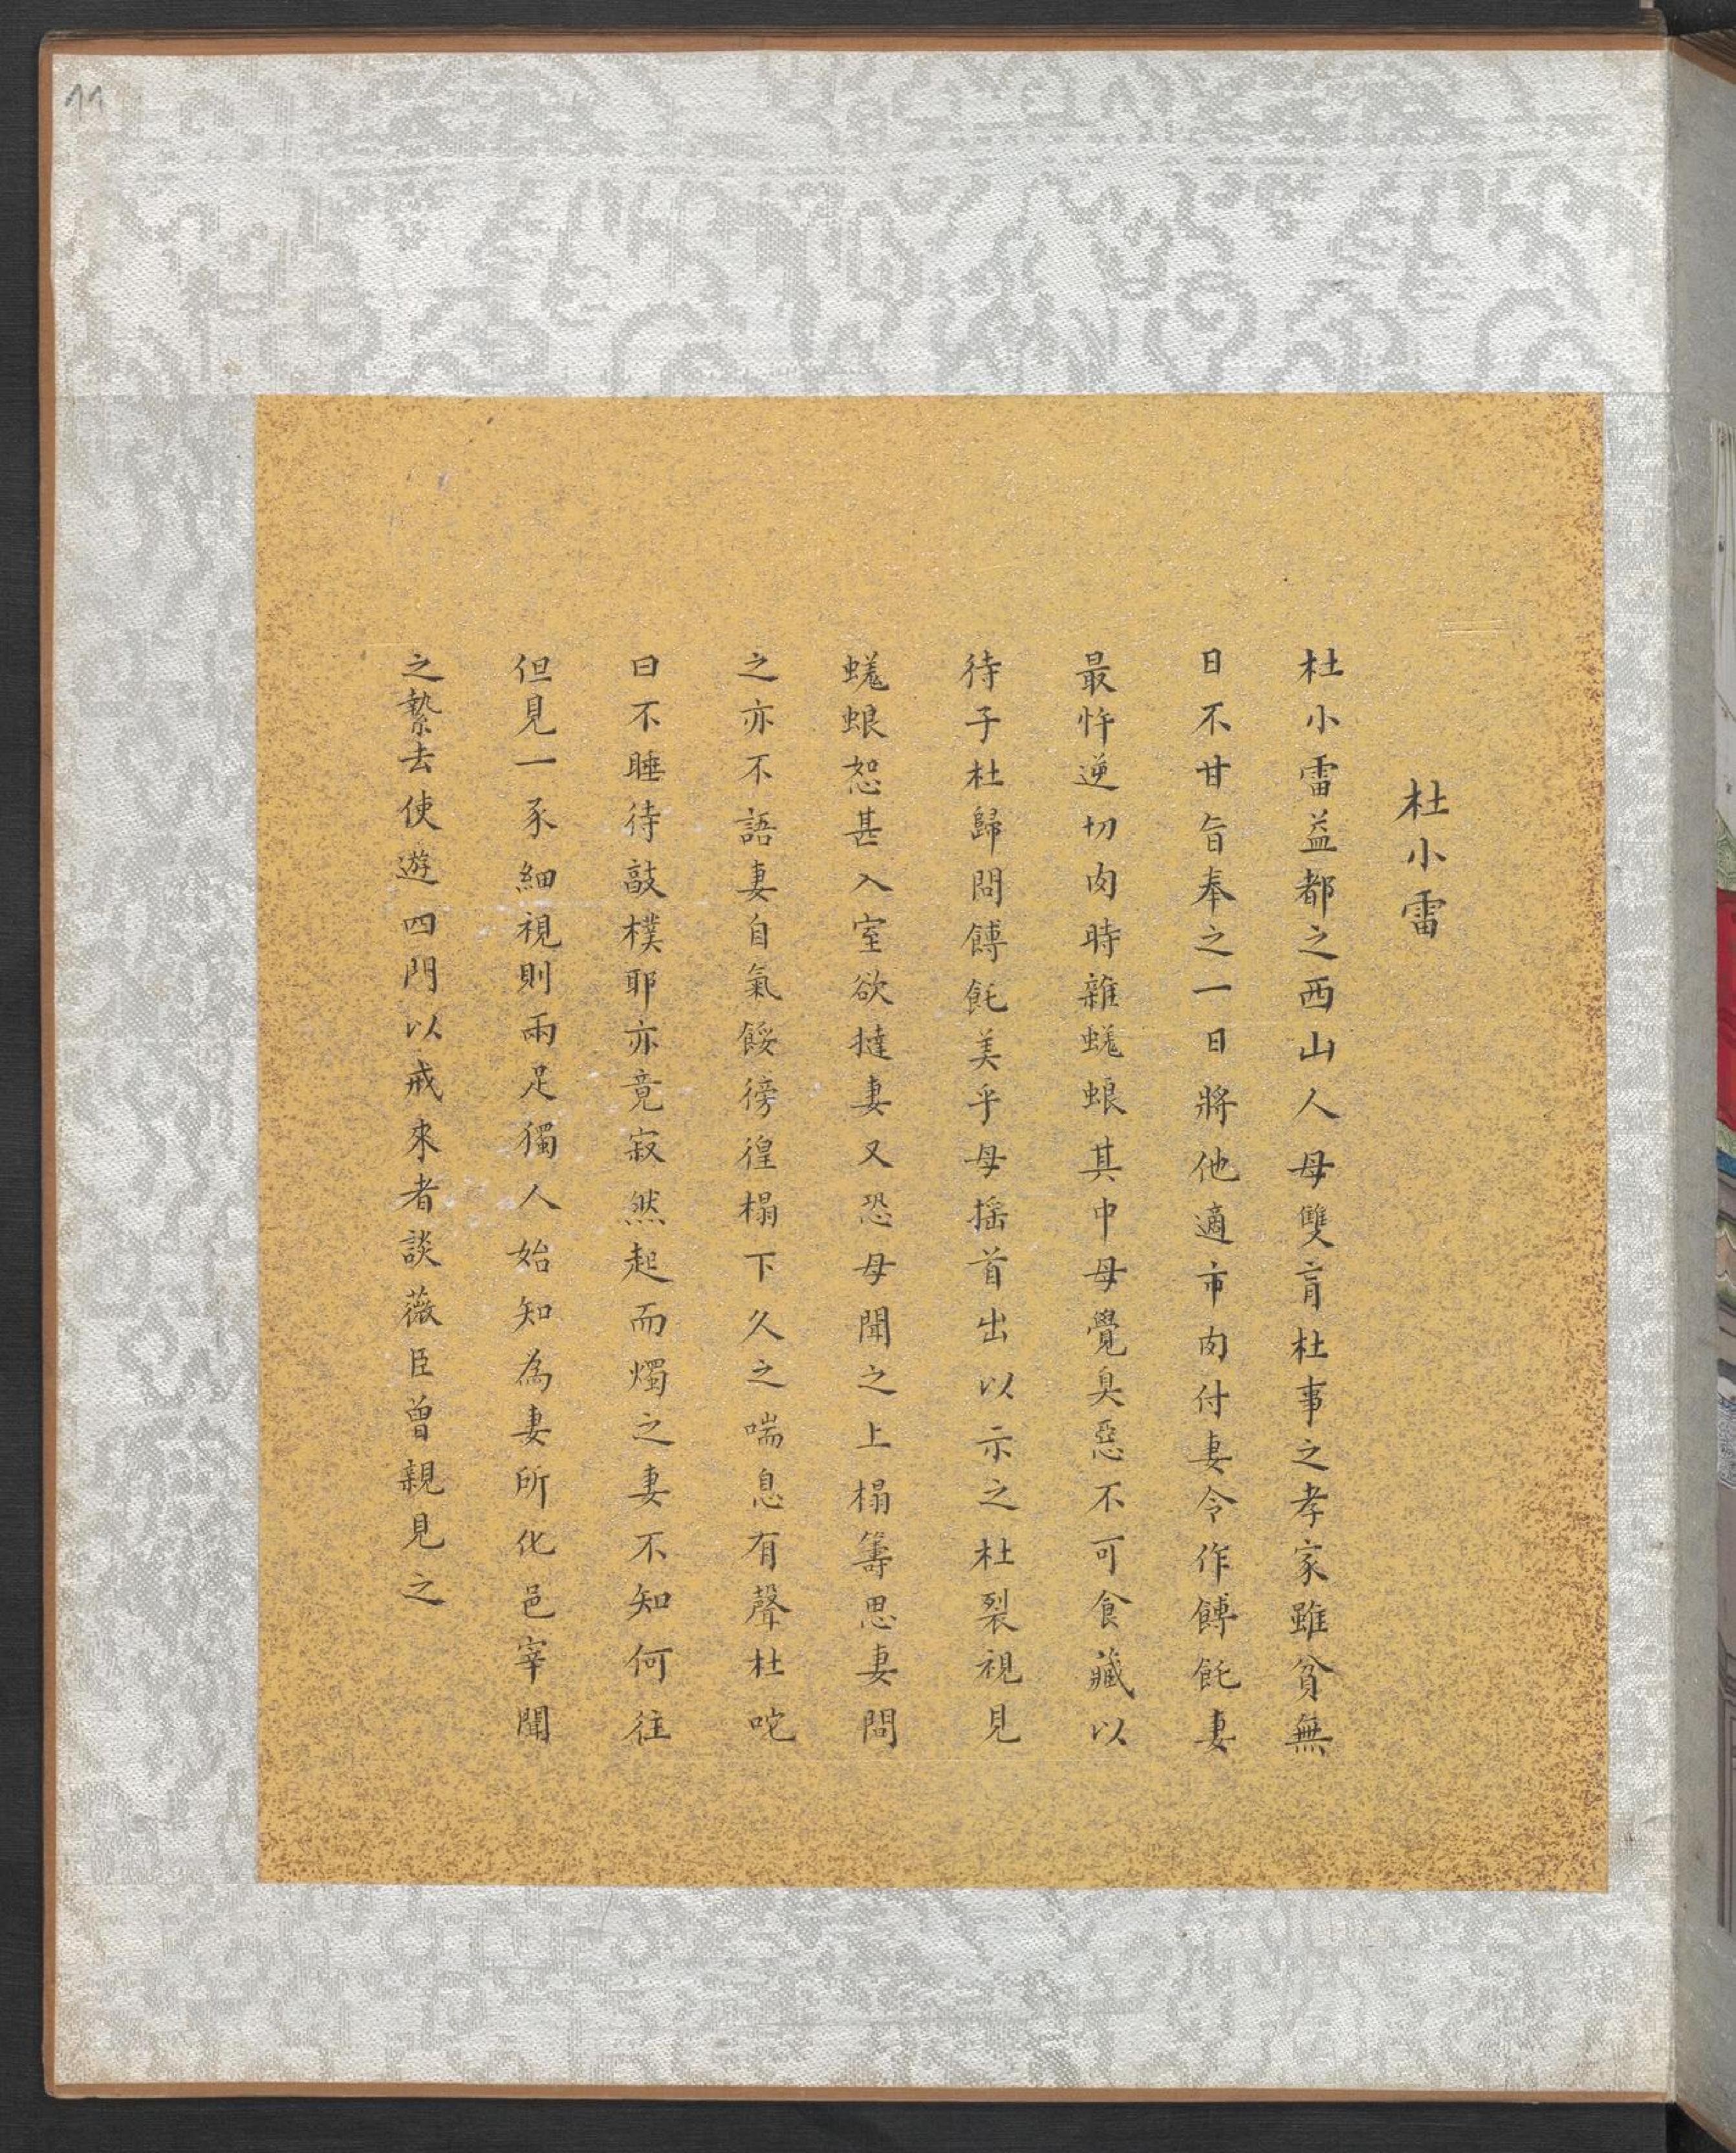 11
杜小雷
杜小雷益都之西山人母雙盲杜事之孝家雖貧無
日不甘旨奉之一日將他適市肉付妻令作餺飥妻
最忤逆切肉時雜蜣蜋其中母覺臭惡不可食藏以
待子杜歸問餺飥美乎母搖首出以示之杜裂視見
蜣蜋恕甚入室欲撻妻又恐母聞之上榻籌思妻問
之亦不語妻自氣餒徬徨榻下久之喘息有聲杜咤
曰不睡待敲樸耶亦竟寂然起而燭之妻不知何往
但見一豕細視則兩足獨人始知為妻所化邑宰聞
之縶去使遊四門以戒來者談薇臣曾親見之